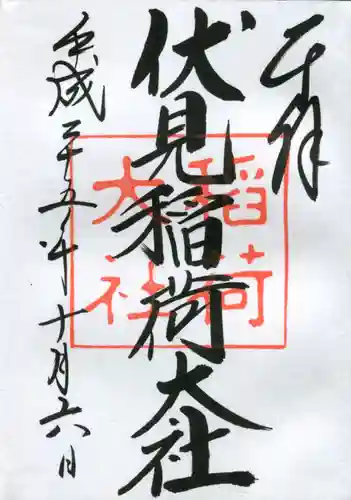 奉拝
伏見稲荷大社
稲荷
大社
平成二十五年十月六日